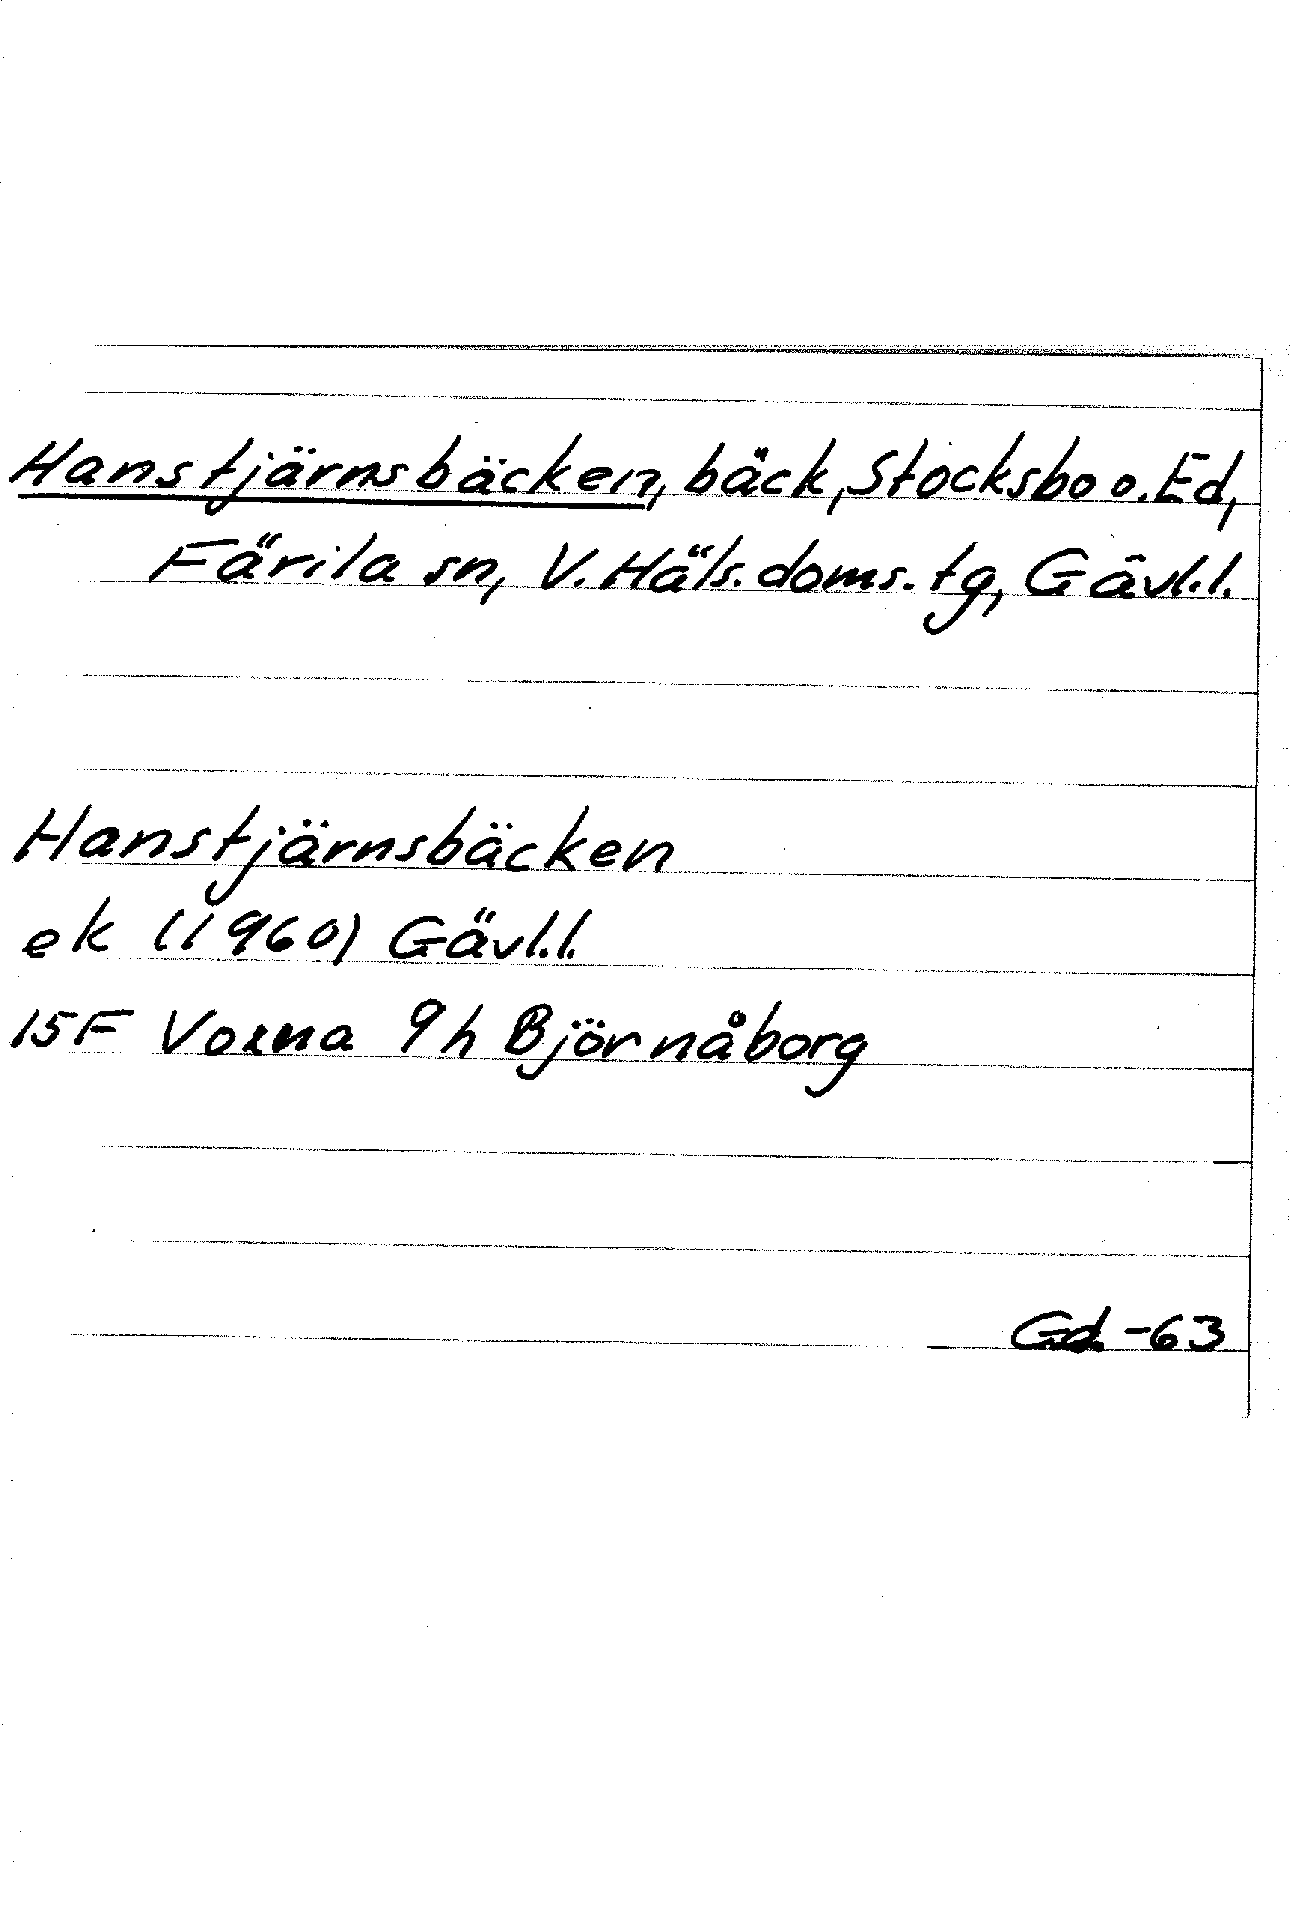 Hanstjärnsbäcken, bäck, Stocksbo o. Ed,
Färila sn, V. Häls. doms. tg, Gävl. l.
Hanstjärnsbäcken
ek (1960) Gävl. l.
15F Voxna 9h Björnåborg
Gd -63